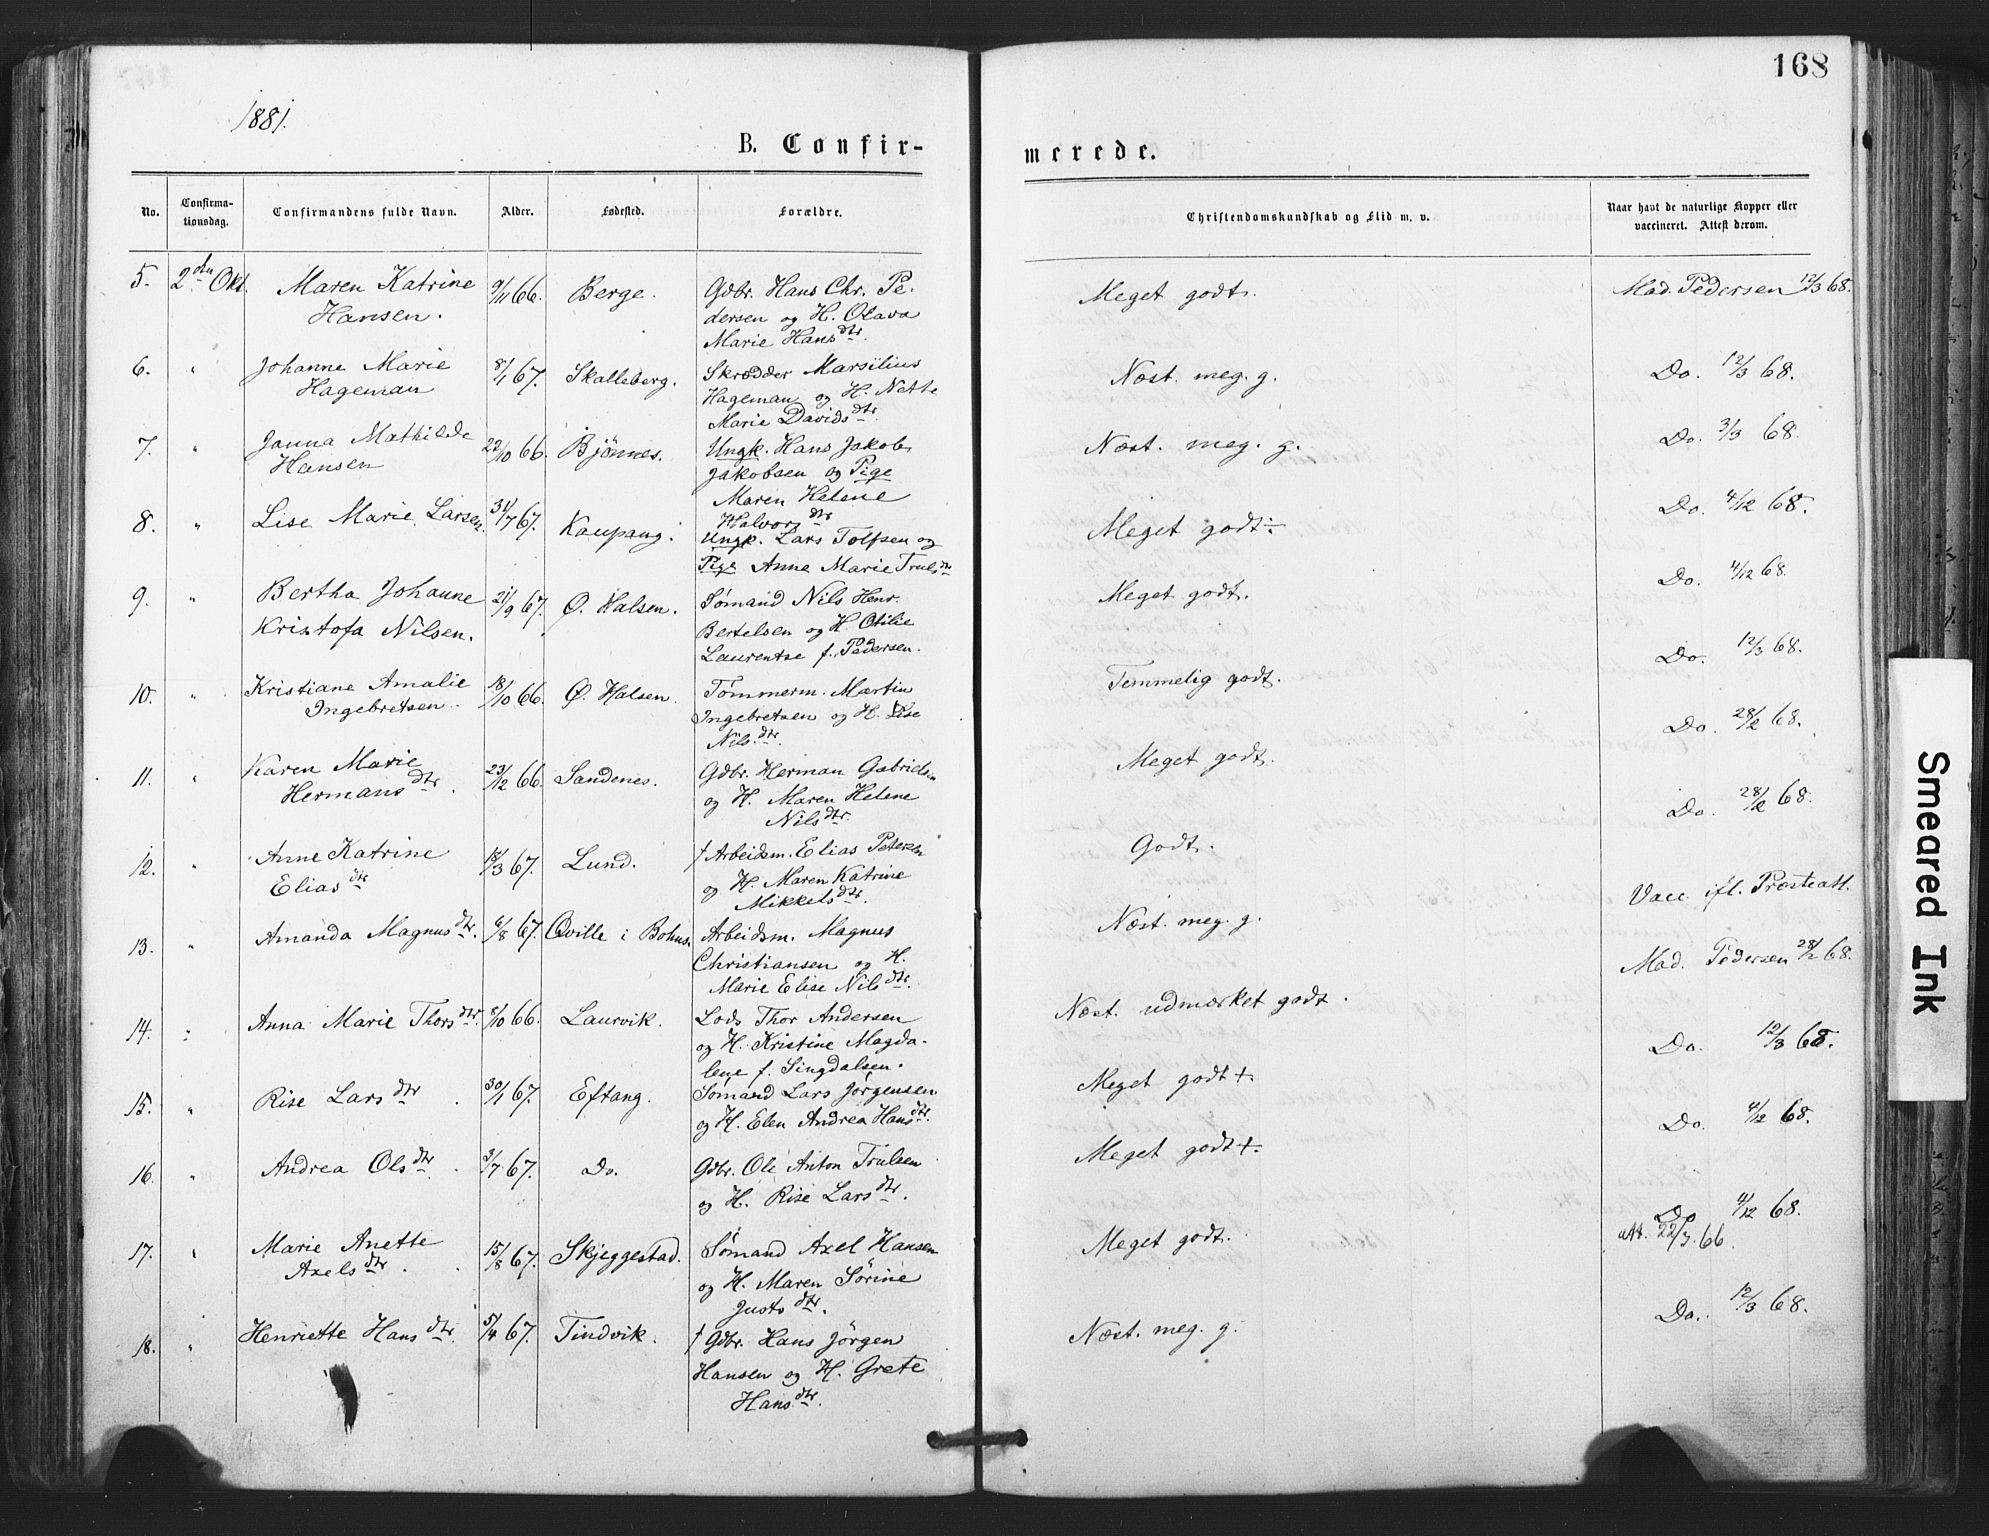 168
1881.
B. Confir-
merede.
No.
Confirma-
tionsdag.
Confirmandens fulde Navn.
Alder.
Fødested.
Forældre.
Christendomskundskab og Flid m. v.
Naar havt de naturlige Kopper eller
vaccineret. Attest derom.
5. 2den Okt. Maren Katrine 9/11 66. Berge. Gdbr. Hans Chr. Pe- Meget godt. Mad. Pedersen 12/3 68.
Hansen. dersen og H. Olava
Marie Hansdtr.
6. " Johanne Marie 8/1 67. Skalleberg. Skrædder Marsilius Næst. meg. g. Do. 12/3 68.
Hageman Hageman og H. Nette
Marie Davidsdtr.
7. " Janna Mathilde 22/10 66. Bjönnes. Ungk. Hans Jakob Næst. meg. g. Do. 3/3 68.
Hansen Jakobsen og Pige
Maren Helene
Halvorsdtr
8. " Lise Marie Larsen 31/7 67. Kaupang. Ungk. Lars Tolfsen og Meget godt ÷ Do. 4/12 68.
Pige Anne Marie Trulsdtr
9. " Bertha Johanne 21/9 67. Ø. Halsen. Sømand Nils Henr. Meget godt. Do. 4/12 68.
Kristofa Nilsen. Bertelsen og H. Otilie
Laurentse f. Pedersen.
10. " Kristiane Amalie 18/10 66. Ø. Halsen. Tømmerm. Martin Temmelig godt. Do. 12/3 68.
Ingebretsen Ingebretsen og H. Lise
Nilsdtr.
11. " Karen Marie 23/12 66. Sandenes. Gdbr. Herman Gabrielsen Meget godt. Do. 28/2 68.
Hermansdtr. og H. Maren Helene
Nilsdtr.
12. " Anne Katrine /3 67. Lund. † Arbeidsm. Elias Petersen Godt. Do. 28/2 68.
Eliasdtr og H. Maren Katrine
Mikkelsdtr.
13. " Amanda Magnusdtr. 6/8 67. Qville i Bohus. Arbeidsm. Magnus Næst. meg. g. Vacc. ifl. Præsteatt.
Christiansen og H.
Marie Elise Nilsdtr.
14. " Anna Marie Thorsdtr. 8/10 66. Laurvik. Lods Thor Andersen Næst. udmærket godt. Mad. Pedersen 28/2 68.
og H. Kristine Magda-
lene f. Singdalsen.
15. " Rise Larsdtr. 30/1 67. Eftang. Sømand Lars Jørgensen Meget godt +. Do. 12/3 68.
og H. Elen Andrea Hansdtr.
16. " Andrea Olsdtr. 3/7 67. Do. Gdbr. Ole Anton Trulsen Meget godt +. Do. 4/12 68.
og H. Rise Larsdtr.
17. " Marie Anette 15/8 67. Skjeggestad. Sømand Axel Hansen Meget godt. Do 4/12 68.
Axelsdtr. og H. Maren Sörine
Justsdtr.
att. 22/3. 66.
18. " Henriette Hansdtr. 5/4 67. Tindvik. † Gdbr. Hans Jörgen Næst. meg. g. Do. 12/3 68.
Hansen og H. Grete
Hansdtr.
Smeared Ink